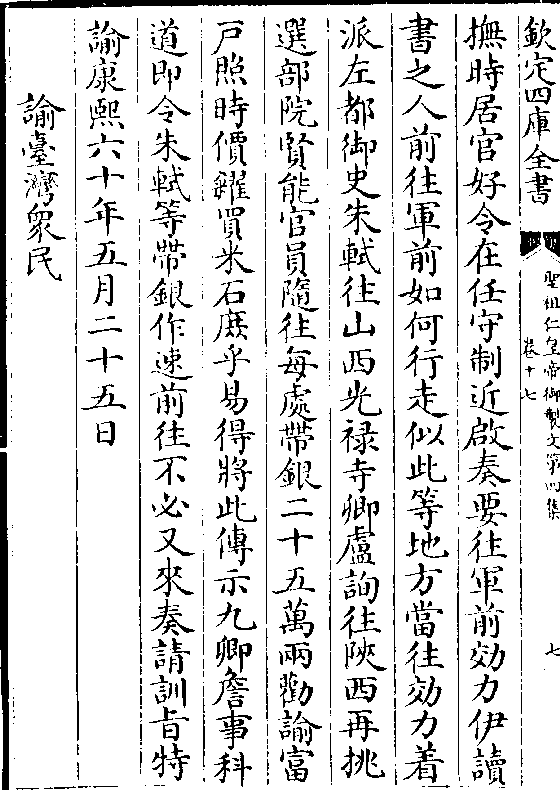 欽定四庫全書
聖祖仁皇帝御製文第四集
卷十七
七
撫時居官好令在任守制近啟奏要往軍前効力伊讀
書之人前往軍前如何行走似此等地方當往効力着
派左都御史朱軾往山西光禄寺卿盧詢往陝西再挑
選部院賢能官員隨往每處帶銀二十五萬兩勸諭富
戸照時價糴買米石庶乎易得將此傳示九卿詹事科
道即令朱軾等帶銀作速前往不必又來奏請訓旨特
諭康熙六十年五月二十五日
諭臺灣衆民